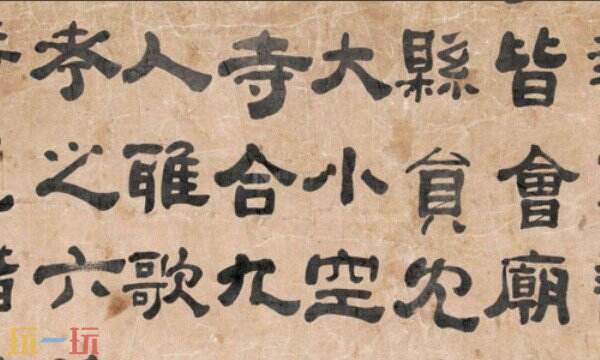 皆會廟
縣員
大小空
寺合九
人雅歌
孝之六
玩一玩